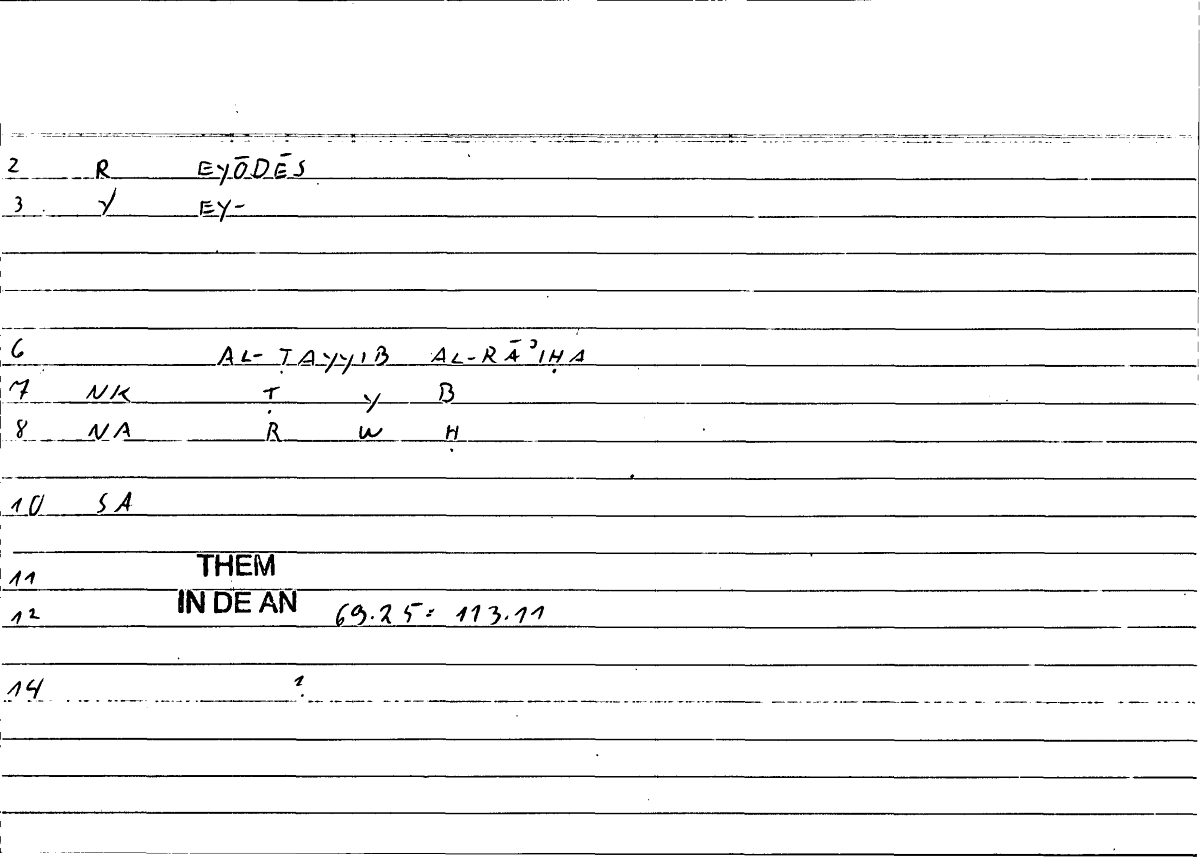 2 R EYŌDĒS
3 Y EY-
6 AL-ṬAYYIB AL-RĀʾIḤA
7 NK Ṭ Y B
8 NA R W Ḥ
10 SA
11 THEM
12 IN DE AN 69.25: 113.11
14 ?